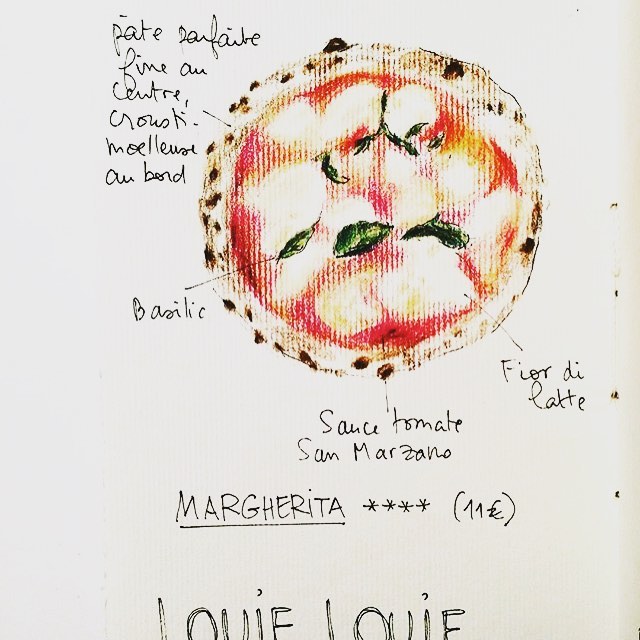 pâte parfaite
fine au
centre,
crousti-
moelleuse
au bord
Basilic
Fior di
latte
Sauce tomate
San Marzano
MARGHERITA **** (11€)
LOUIE LOUIE